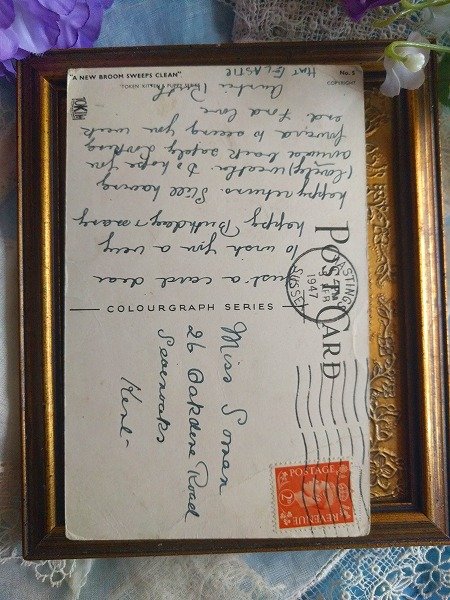 "A NEW BROOM SWEEPS CLEAN"
No. 5
COPYRIGHT
HAT ELASTIC
POST CARD
COLOURGRAPH SERIES
Just a card dear
to wish you a very
happy Birthday & many
happy returns. Still having
(lovely) weather. Do hope you
arrived back safely. Looking
forward to seeing you week
end. Fond love
Auntie
Miss
26 Oakdene Road
Sevenoaks
Kent-
HASTINGS
FEB
1947
SUSSEX
POSTAGE
REVENUE